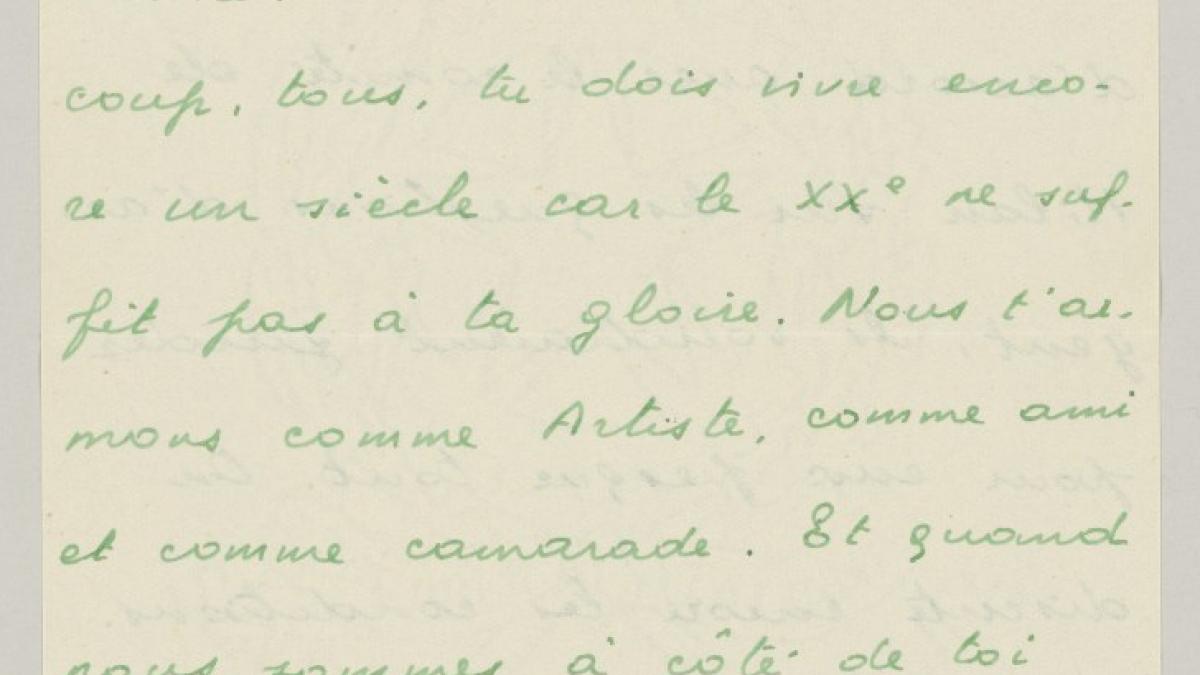 coup, tous, tu dois vivre enco-
re un siècle car le XXe ne suf-
fit pas à ta gloire. Nous t'ai-
mons comme Artiste, comme ami
et comme camarade. Et quand
nous sommes à côté de toi